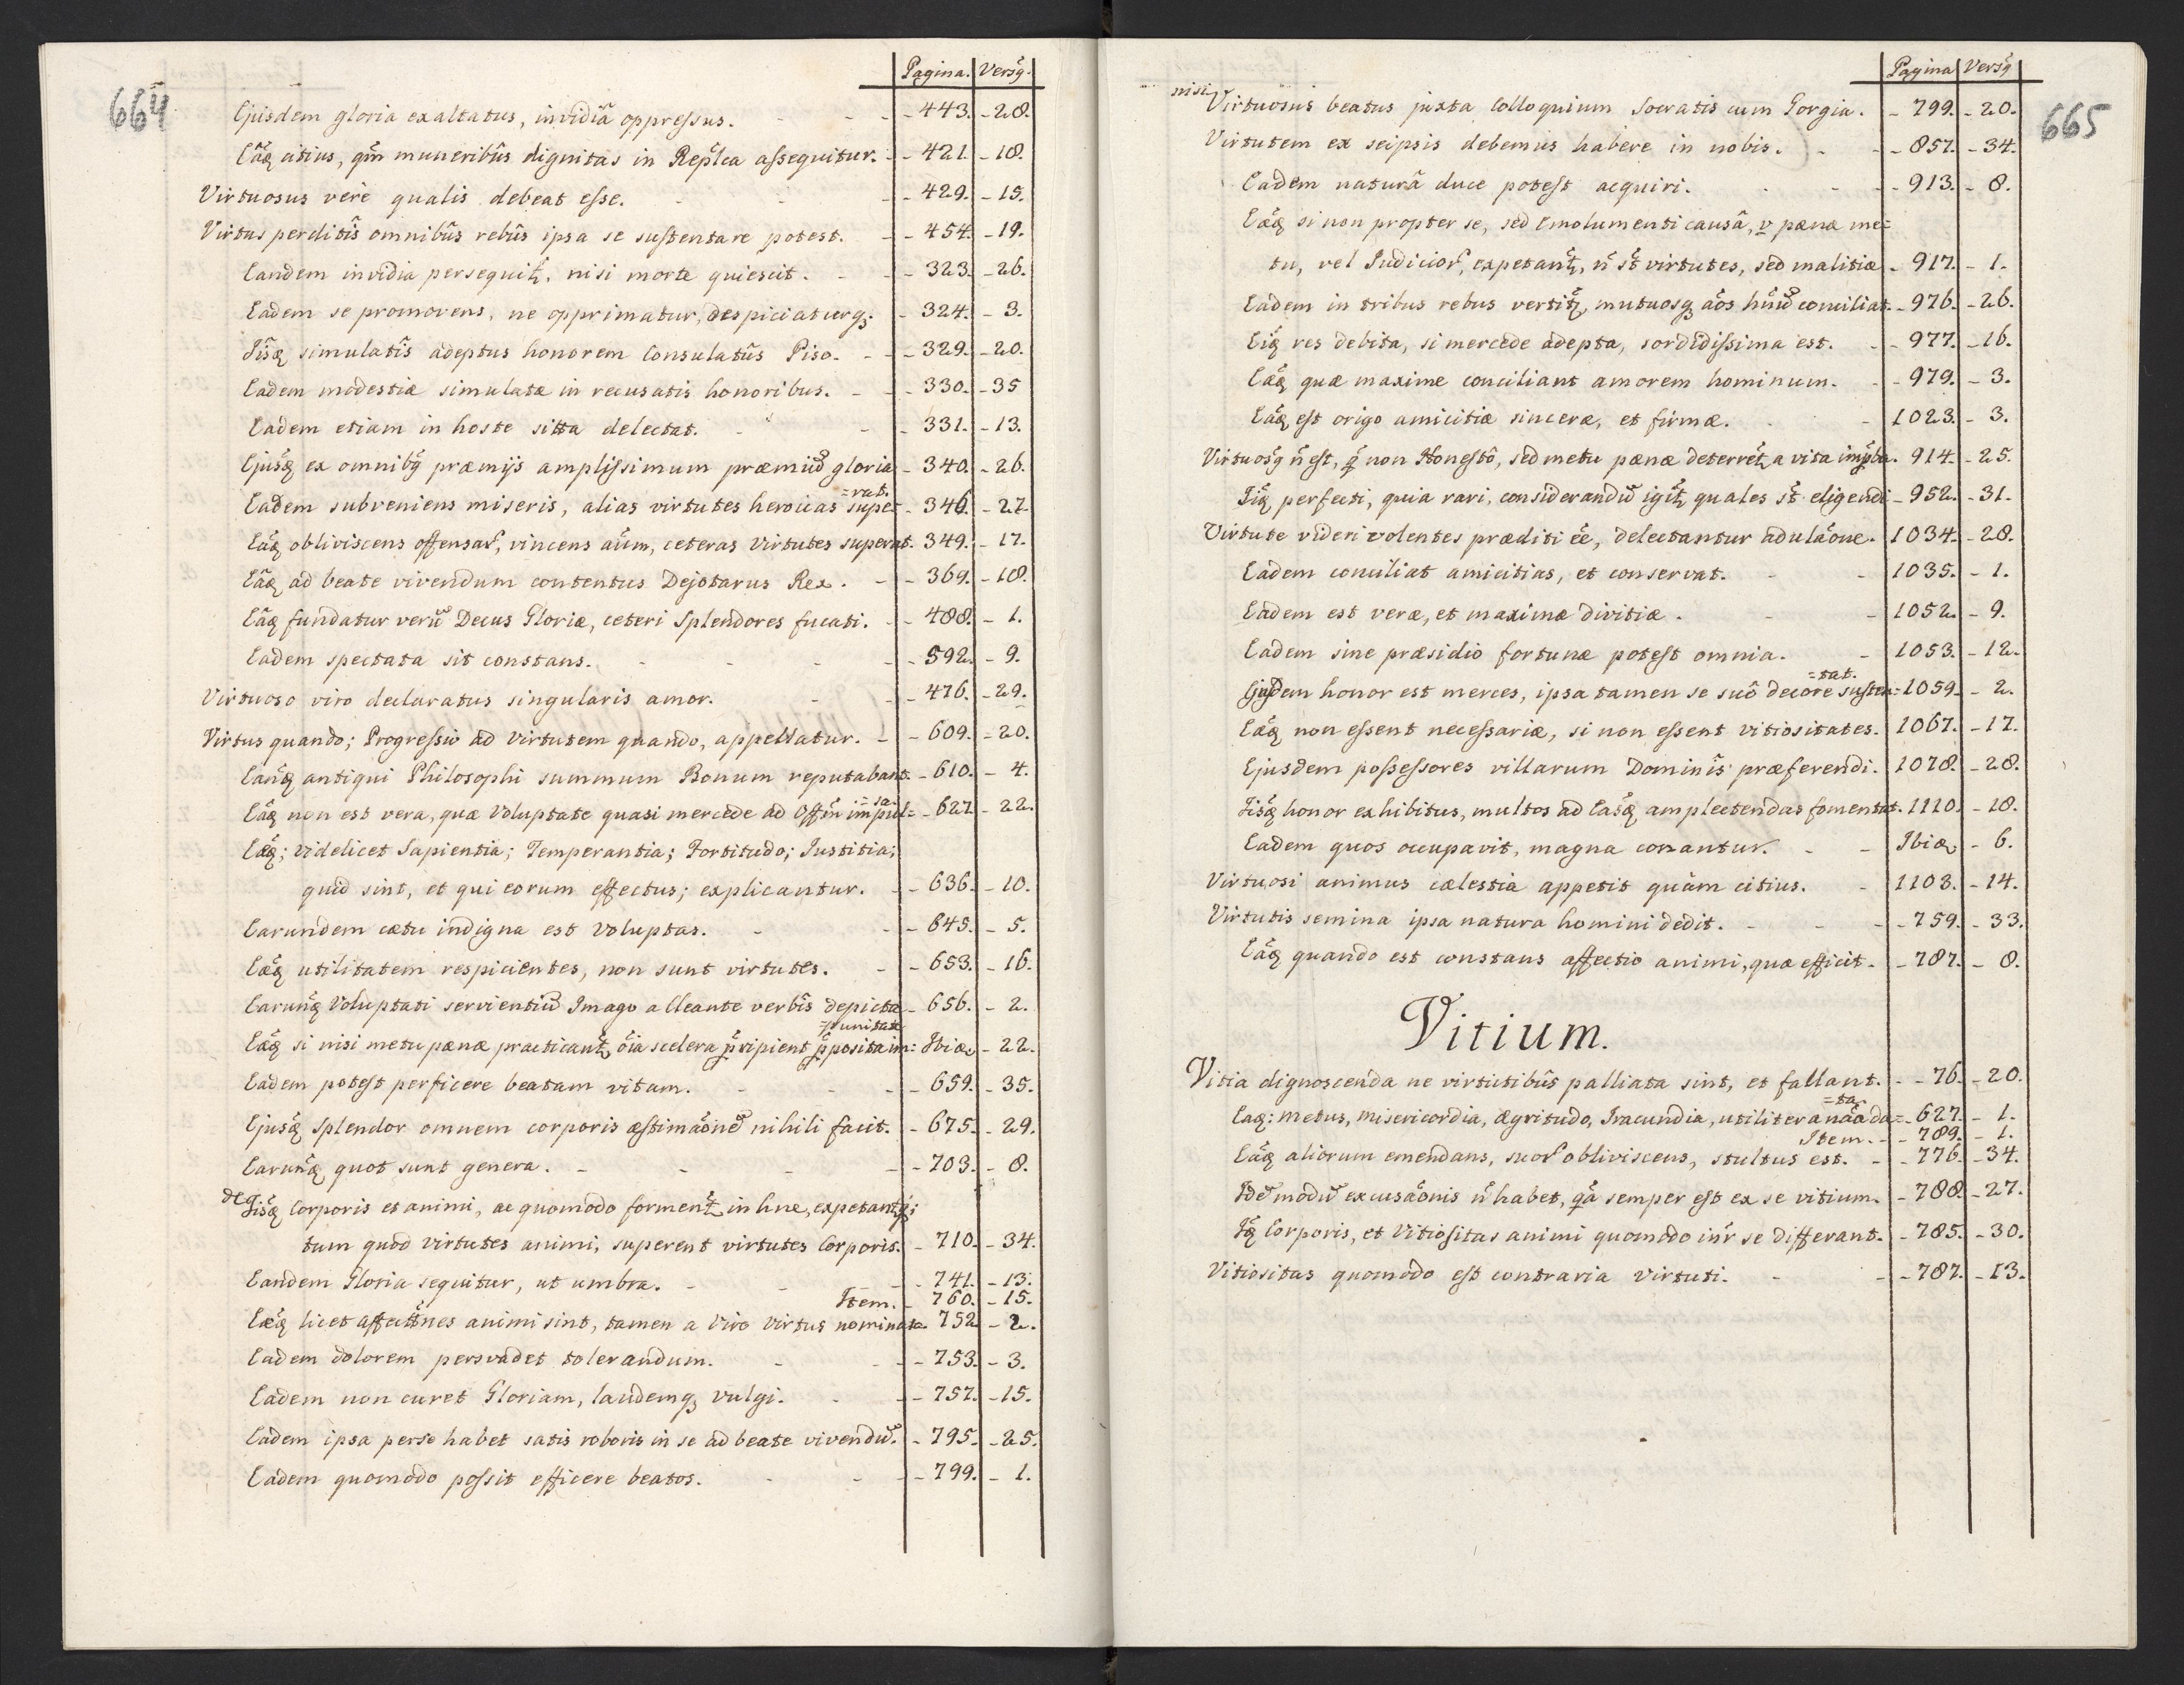 664
Pagina. Versq̃.
Ejusdem gloria exaltatus, invidiâ oppressus. - 443. - 28.
Eãq citius, qm̃ muneribûs dignitas in Repl̃ca assequitur. - 421. - 18.
Virtuosus verè qualis debeat esse. - 429. - 15.
Virtus perditîs omnibûs rebûs ipsa se sustentare potest. - 454. - 19.
Eandem invidia persequit̃, nisi morte quiescit. - 323. - 26.
Eadem se promovens, ne opprimatur, despiciaturq; - 324. - 3.
Iisq̃ simulatîs adeptus honorem Consulatûs Piso. - 329. - 20.
Eadem modestiæ simulatæ in recusatis honoribus. - 330. - 35
Eadem etiam in hoste sitta delectat. - 331. - 13.
Ejusq̃ ex omnibq̃ præmijs amplissimum præmiũ gloria - 340. - 26.
=rat.
Eadem subveniens miseris, alias virtutes heroicas supe= - 346. - 27.
Eãq obliviscens offensar̃, vincens aũm, ceteras Virtutes superat. 349. - 17.
Eãq ad beate vivendum contentus Dejotarus Rex. - 369. - 18.
Eãq fundatur verũ Decus Gloriæ, ceteri Splendores fucati. - 488. - 1.
Eadem spectata sit constans. - 592. - 9.
Virtuoso viro declaratus singularis amor. - 476. - 29.
Virtus quando; Progressio ad Virtutem quando, appellatur. - 609. - 20.
Eanq̃ antiqui Philosophi summum Bonum reputabant. - 610. - 4.
=sa.
Eãq non est vera, quæ Voluptate quasi mercede ad Offm̃ impul= - 627. - 22.
Eæq̃; videlicet Sapientia; Temperantia; Fortitudo; Justitia;
quid sint, et qui eorum effectus; explicantur. - 636. - 10.
Earundem cætu indigna est Voluptas. - 645. - 5.
Eæq̃ utilitatem respicientes, non sunt virtutes. - 653. - 16.
Earunq̃ Voluptati servientiũ Imago a Cleante verbîs depicta - 656. - 2.
=punitate
Eãq si nisi metu pænæ practicant̃, õia scelera p̃ripient p̃posita im= Ibid. - 22.
Eadem potest perficere beatam vitam. - 659. - 35.
Ejusq̃ Splendor omnem corporis æstimãõnẽ nihili facit. - 675. - 29.
Earunq̃ quot sunt genera. - 703. - 8.
de Iisq̃ Corporis et animi, ac quomodo forment̃ in hne, expetantq̃;
tum quod virtutes animi, superent virtutes Corporis. - 710. - 34.
Eandem Gloria sequitur, ut umbra. - 741. - 13.
Item. - 760. - 15.
Eæq̃ licet affectiõnes animi sint, tamen a Viro Virtus nominata. 752. - 2.
Eadem dolorem persvadet tolerandum. - 753. - 3.
Eadem non curet Gloriam, laudemq; vulgi. - 757. - 15.
Eadem ipsa perse habet satis roboris in se ad beate vivendũ. - 795. - 25.
Eadem quomodo possit efficere beatos. - 799. - 1.
665
Pagina Versq̃
nisi
Virtuosus beatus juxta Colloquium Socratis cum Gorgia. - 799. - 20.
Virtutem ex seipsis debemus habere in nobis. - 857. - 34.
Eadem naturâ duce potest acquiri. - 913. - 8.
Eæq̃ si non propter se, sed Emolumenti causâ, v pænæ me=
tu, vel Judicior̃, expetant̃, ñ st̃ virtutes, sed malitiæ - 917. - 1.
Eadem in tribus rebus vertit̃, mutuosq; aõs hñũ conciliat. - 976. - 26.
Eiq̃ res debita, si mercede adepta, sordidissima est. - 977. - 16.
Eæq̃ quæ maxime conciliant amorem hominum. - 979. - 3.
Eãq est origo amicitiæ sinceræ, et firmæ. - 1023. - 3.
Virtuosq̃ ñ est, q̃ non Honestô, sed metu pænæ deterret̃ a vita imp̃ba. 914. - 25.
Iiq̃ perfecti, quia rari, considerandũ igit̃ quales st̃ eligendi - 952. - 31.
Virtute videri volentes præditi ẽẽ, delectantur adulãõne. 1034. - 28.
Eadem conciliat amicitias, et conservat. - 1035. - 1.
Eadem est veræ, et maximæ divitiæ. - 1052. - 9.
Eadem sine præsidio fortunæ potest omnia. - 1053. - 12.
=tat.
Ejusdem honor est merces, ipsa tamen se suô decore susten= 1059. - 2.
Eæq̃ non essent necessariæ, si non essent vitiositates. 1067. - 17.
Ejusdem possessores villarum Dominîs præferendi. 1078. - 28.
Iisq̃ honor exhibitus, multos ad Easq̃ amplectendas fomentat. 1110. - 18.
Eadem quos occupavit, magna conantur. - Ibid. - 6.
Virtuosi animus cælestia appetit quàm citius. - 1103. - 14.
Virtutis semina ipsa natura homini dedit. - 759. - 33.
Eãq quando est constans affectio animi, quæ efficit. - 787. - 8.
Vitium.
Vitia dignoscenda ne virtutibûs palliata sint, et fallant. - 76. - 20.
=ta.
Eaq: metus, misericordia, ægritudo, Iracundia, utiliter anãõ da= - 627. - 1.
Item. - 789. - 1.
Eãq aliorum emendans, suor̃ obliviscens, stultus est. - 776. - 34.
Idẽ modũ excusãõnis ñ habet, q̃a semper est ex se vitium. - 788. - 27.
Iq̃ Corporis, et Vitiositas animi quomodo inr̃ se differant. - 785. - 30.
Vitiositas quomodo est contraria Virtuti. - 787. - 13.